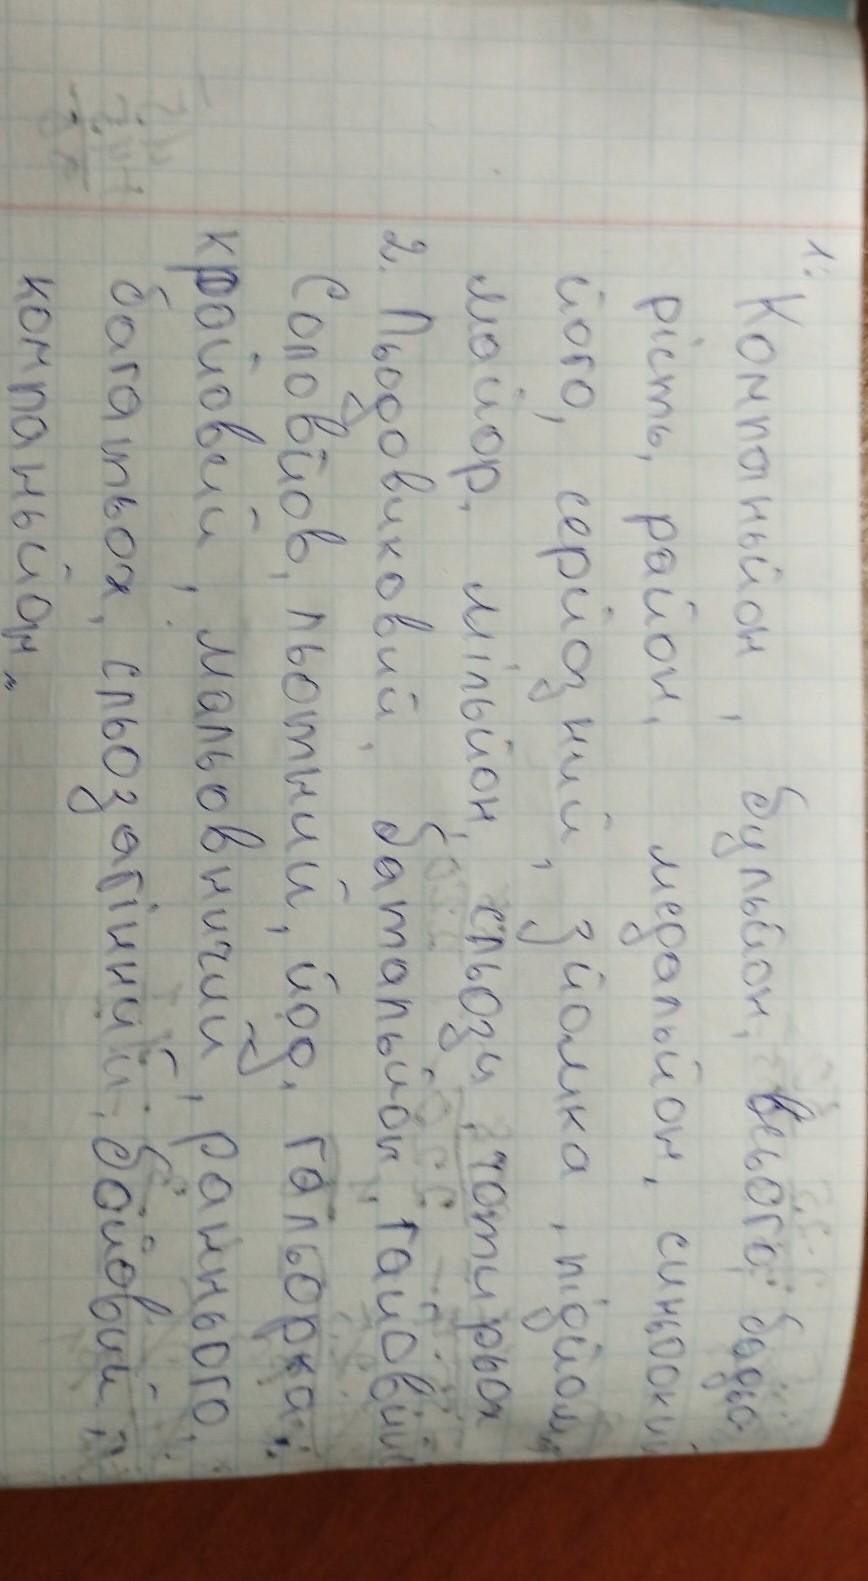 1. Компаньйон, бульйон, всього, бадьо
рість, район, медальйон, синьоокий
його, серйозний, зйомка, підйом,
майор, мільйон, сльози, чотирьох
2. Льодовиковий, батальйон, гайовий
Соловйов, льотний, йод, гальорка,
крайовий, мальовничий, раннього,
багатьох, сльозагінний, бойовий,
компаньйон.